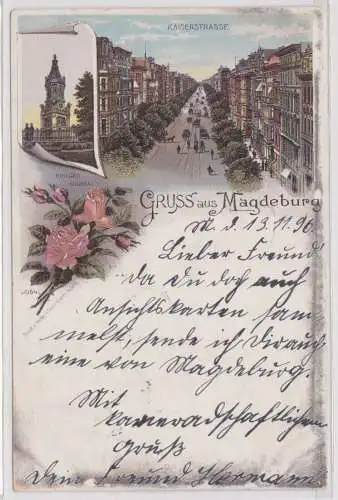 KAISERSTRASSE.
KRIEGER
DENKMAL
GRUSS aus Magdeburg
M. d. 13.11.96.
Lieber Freund
da du doch auch
Ansichtskarten sam-
melst, sende ich Dir auch
eine von Magdeburg.
Mit
kameradschaftlichem
Gruß
Dein Freund Hermann